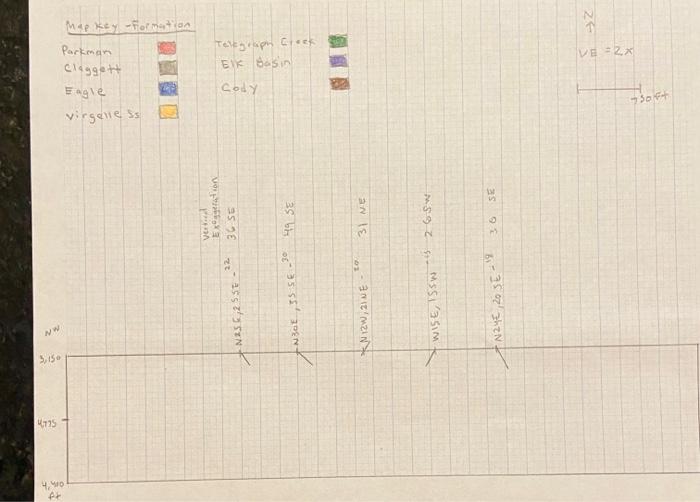 Map Key - Formation
Parkman
Claggett
Eagle
Virgelle Ss
Telegraph Creek
Elk Basin
Cody
N
VE = 2x
750 ft
Vertical
Exaggeration
N25E, 25 SE - 22 36 SE
N30E, 35 SE - 30 49 SE
N12W, 21NE - 20 31 NE
W15E, 15SW - 13 26SW
N24E, 20 SE - 18 36 SE
NW
5,150
4,775
4,400
ft